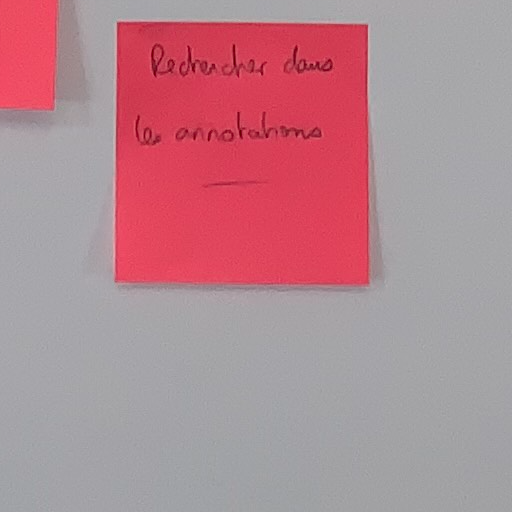 Rechercher dans
les annotations